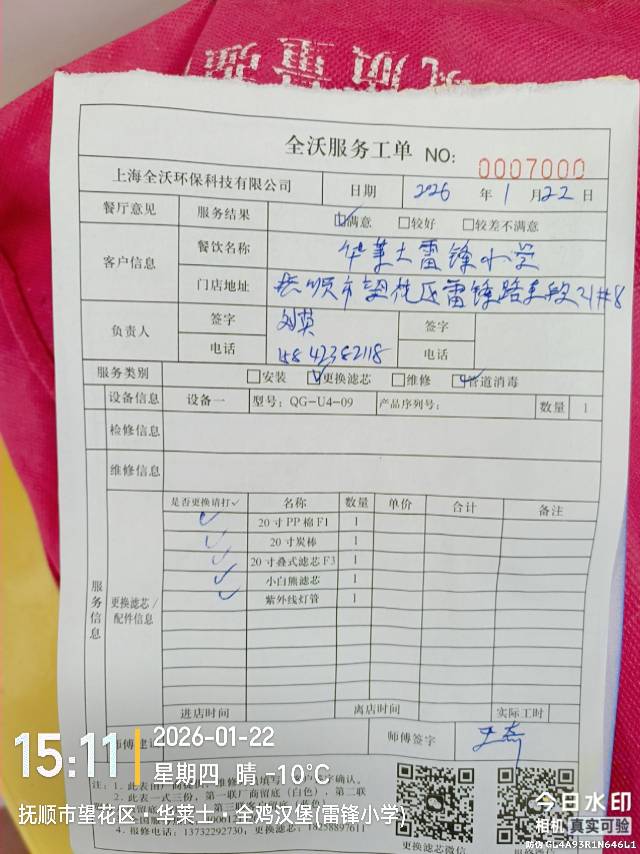 全沃服务工单 NO: 0007000
上海全沃环保科技有限公司 日期 2026 年 1 月 22 日
餐厅意见 服务结果 ☑满意 □较好 □较差不满意
客户信息 餐饮名称 华莱士雷锋小学
门店地址 抚顺市望花区雷锋路东段21#8
负责人 签字 签字
电话 电话
服务类别 □安装 ☑更换滤芯 □维修 ☑管道消毒
设备信息 设备一 型号: QG-U4-09 产品序列号: 数量 1
检修信息
维修信息
服务信息
更换滤芯/配件信息
是否更换请打✓ 名称 数量 单价 合计 备注
✓ 20寸PP棉F1 1
✓ 20寸炭棒 1
✓ 20寸叠式滤芯F3 1
✓ 小白熊滤芯 1
✓ 紫外线灯管 1
进店时间 离店时间 实际工时
师傅建 师傅签字
注: 1. 此表由厂商提供, 维修 填写 字确认。
2. 此表一式三份, 第一联厂商留底(白色), 第二联
4. 报修电话: 13732292730; 更换滤芯: 18258897611
15:11
2026-01-22
星期四 晴 -10℃
抚顺市望花区·华莱士·全鸡汉堡(雷锋小学)
今日水印
相机 真实可验
防伪 GL4A93R1N646L1